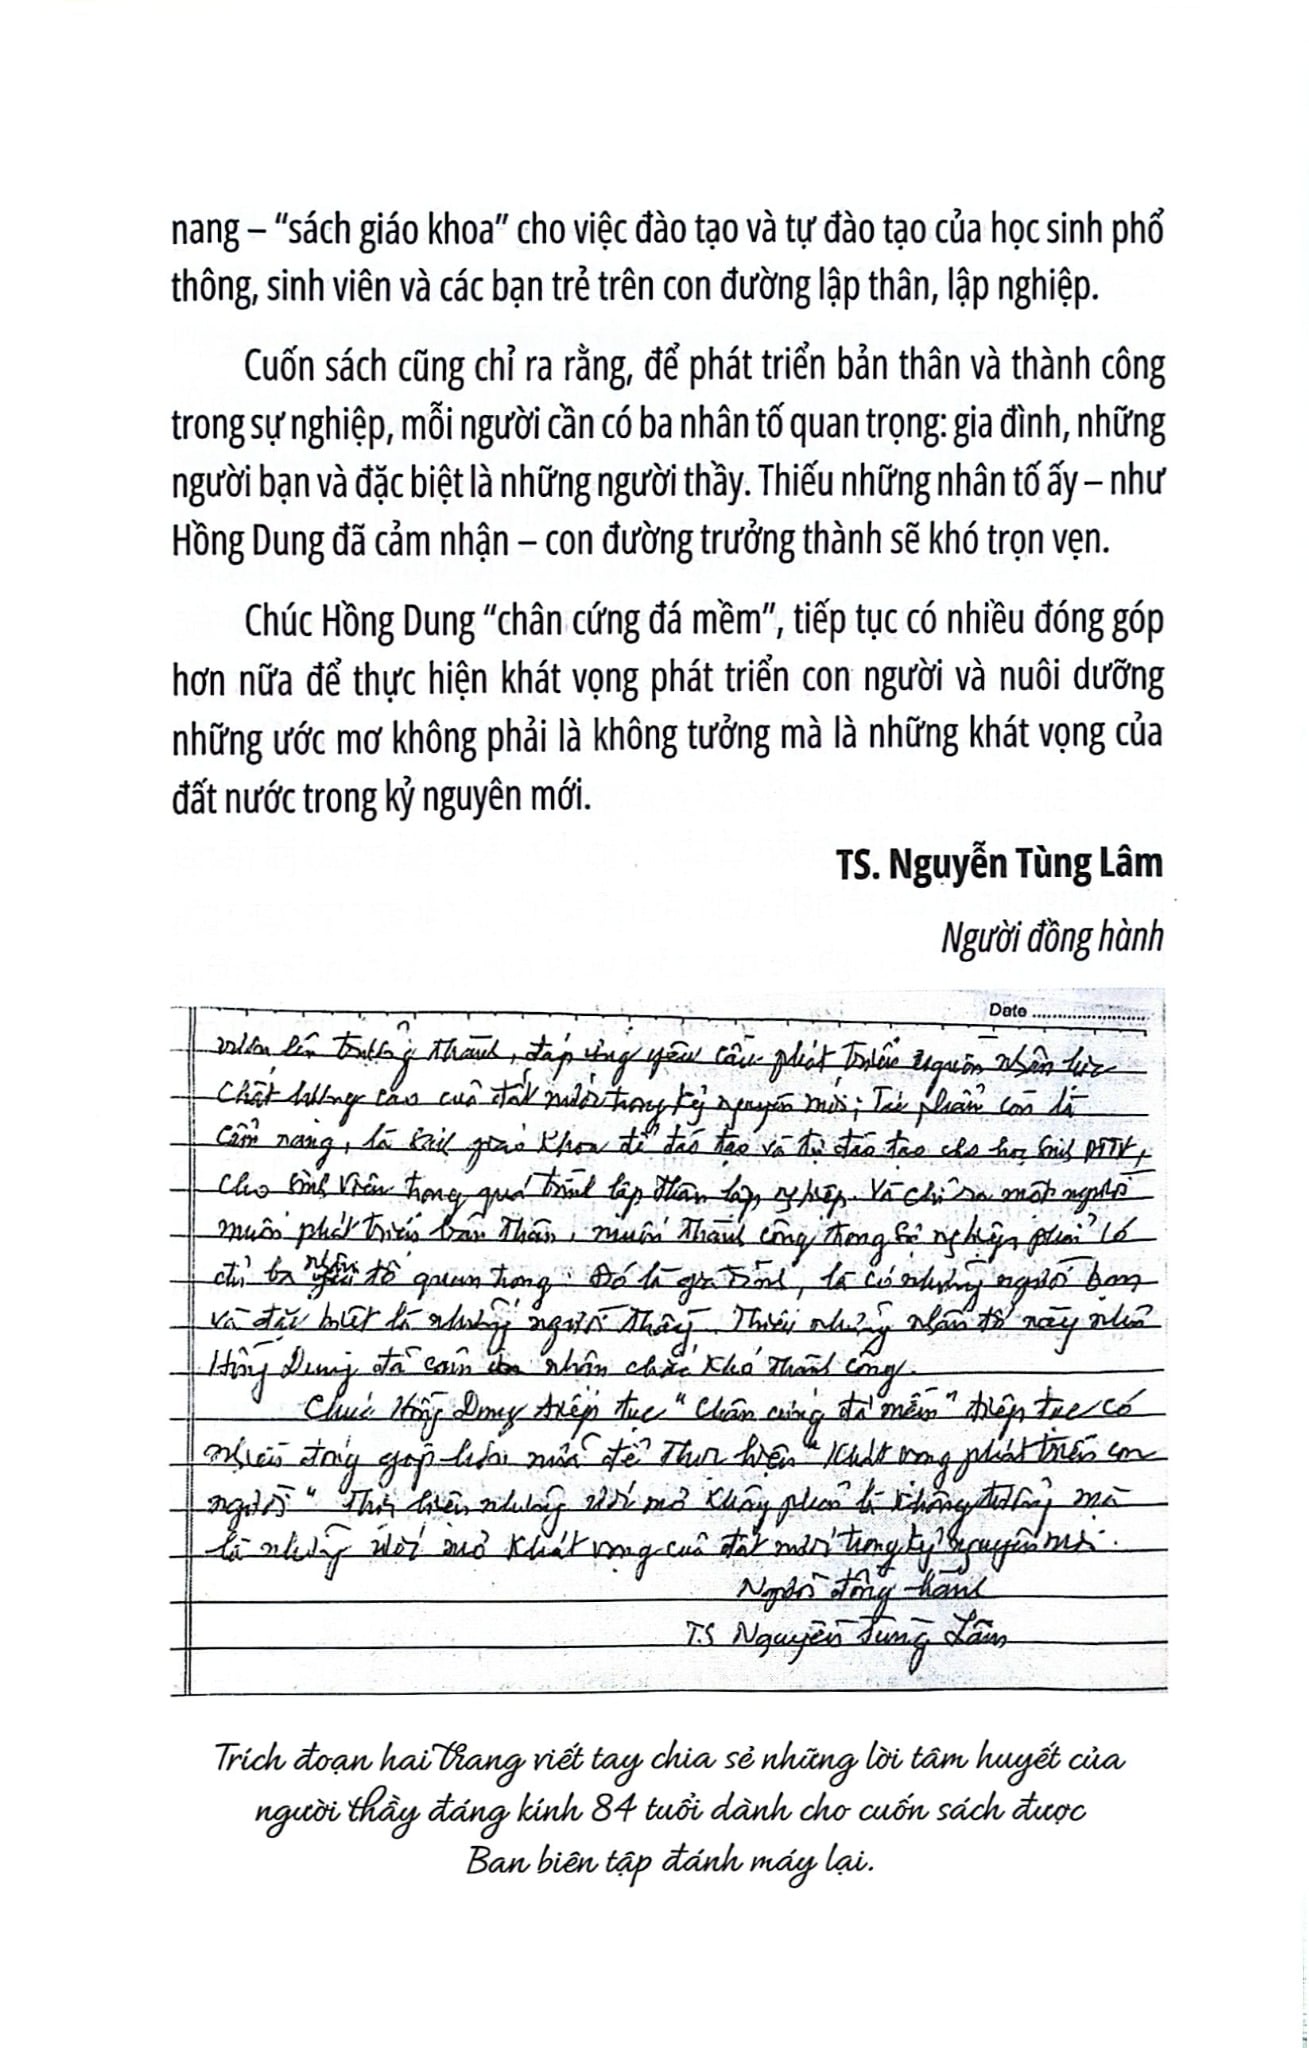 nang – “sách giáo khoa” cho việc đào tạo và tự đào tạo của học sinh phổ
thông, sinh viên và các bạn trẻ trên con đường lập thân, lập nghiệp.
Cuốn sách cũng chỉ ra rằng, để phát triển bản thân và thành công
trong sự nghiệp, mỗi người cần có ba nhân tố quan trọng: gia đình, những
người bạn và đặc biệt là những người thầy. Thiếu những nhân tố ấy – như
Hồng Dung đã cảm nhận – con đường trưởng thành sẽ khó trọn vẹn.
Chúc Hồng Dung “chân cứng đá mềm”, tiếp tục có nhiều đóng góp
hơn nữa để thực hiện khát vọng phát triển con người và nuôi dưỡng
những ước mơ không phải là không tưởng mà là những khát vọng của
đất nước trong kỷ nguyên mới.
TS. Nguyễn Tùng Lâm
Người đồng hành
Date
vươn lên trưởng thành, đáp ứng yêu cầu phát triển nguồn nhân lực
chất lượng cao của đất nước trong kỷ nguyên mới; Tác phẩm còn là
cẩm nang, là sách giáo khoa để đào tạo và tự đào tạo cho học sinh
cho sinh viên trong quá trình lập thân lập nghiệp. Và chỉ ra một người
muốn phát triển bản thân, muốn thành công trong sự nghiệp phải có
đủ ba nhân tố quan trọng. Đó là gia đình, là có những người bạn
và đặc biệt là những người thầy. Thiếu những nhân tố này như
Hồng Dung đã cảm nhận chắc khó thành công.
Chúc Hồng Dung tiếp tục “chân cứng đá mềm” tiếp tục có
nhiều đóng góp hơn nữa để thực hiện “khát vọng phát triển con
người” Thực hiện những ước mơ không phải là không tưởng mà
là những ước mơ khát vọng của đất nước trong kỷ nguyên mới.
Người đồng hành
T.S Nguyễn Tùng Lâm
Trích đoạn hai trang viết tay chia sẻ những lời tâm huyết của
người thầy đáng kính 84 tuổi dành cho cuốn sách được
Ban biên tập đánh máy lại.